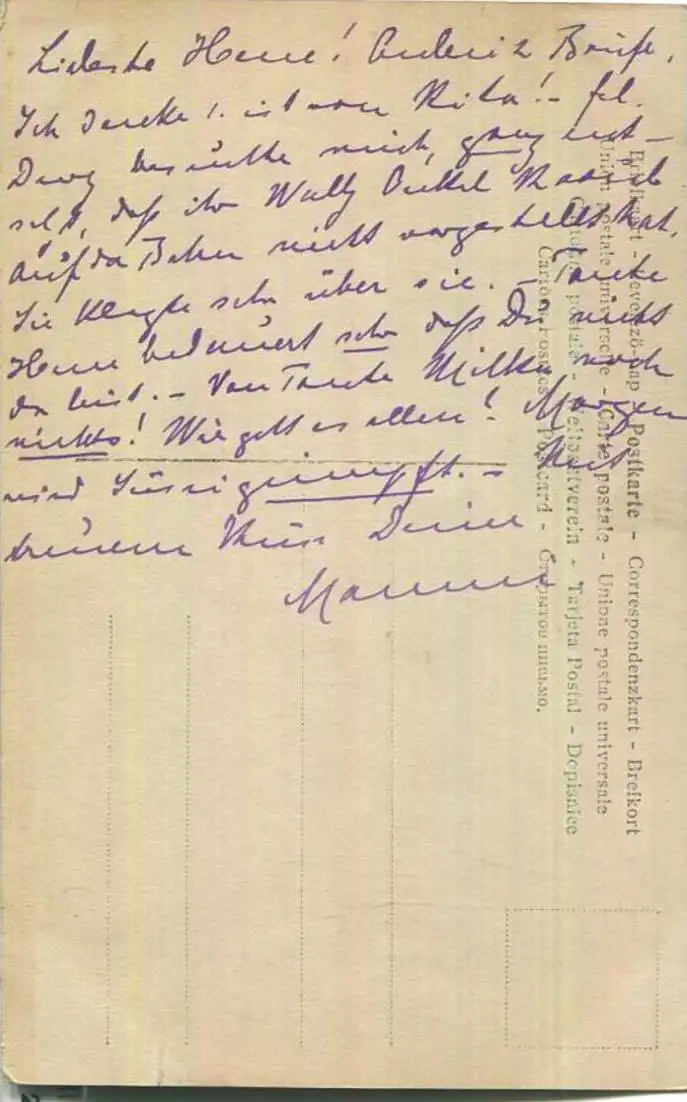 Liebste Hene! Anbei 2 Briefe,
Ich denke 1. ist von Rita! – Frl.
besuchte mich, ganz ent-
setzt, daß ihr Wally Onkel
auf der Bahn nicht vorgestellt hat,
Sie klagte sehr über sie. – Tante
Hene bedauert sehr daß Du nicht
da bist. – Von Tante Milka noch
nichts! Wie geht es allen? Morgen
wird geimpft. – Mit
treuem Kuss Deine
Mamma
Brefkort - Levelező-Lap - Postkarte - Correspondenzkart - Brefkort
Union postale universelle - Carte postale - Unione postale universale
Cartolina postale - Weltpostverein - Tarjeta Postal - Dopisnice
Post card - Открытое письмо.